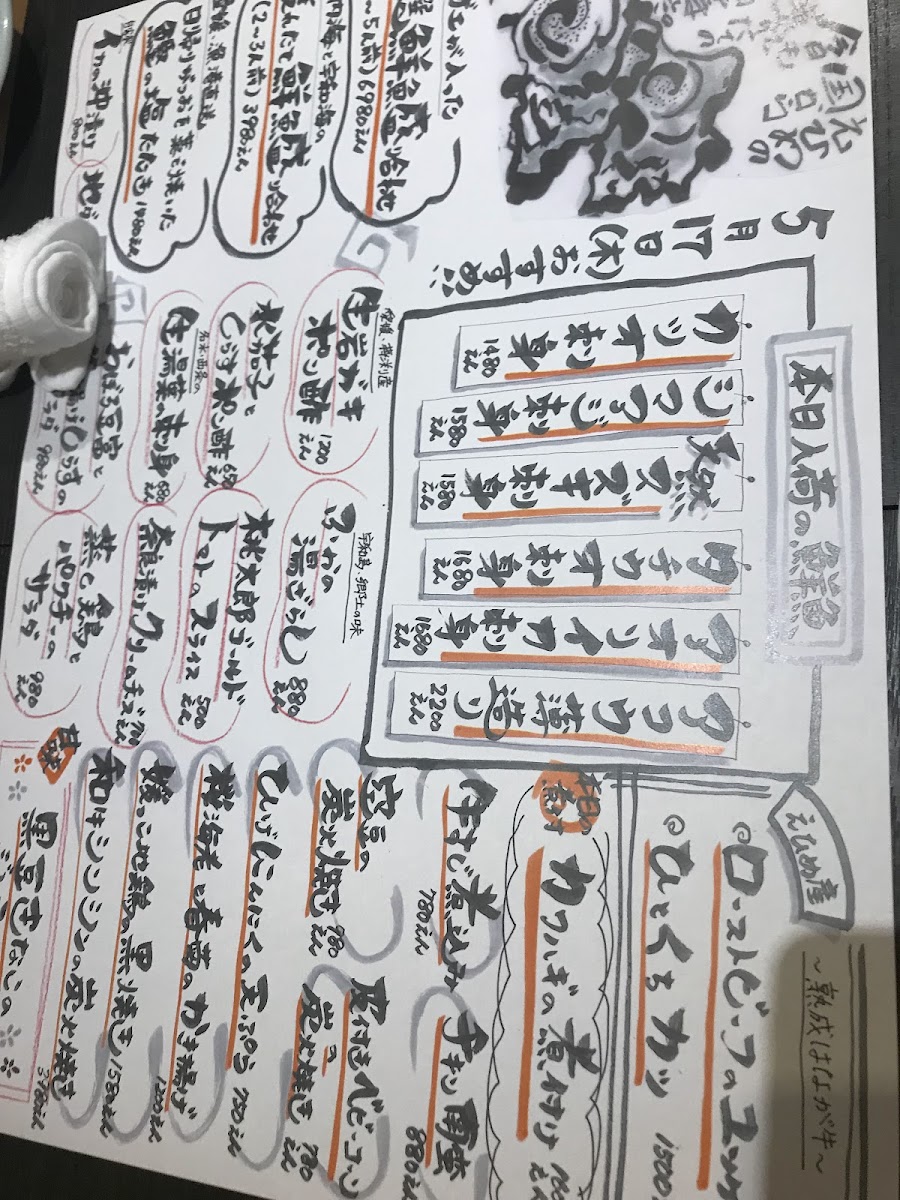 全国
5月17日(木)おすすめ
本日入荷の鮮魚
カツオ刺身
1480えん
シマアジ刺身
1580えん
天然スズキ刺身
1580えん
タチウオ刺身
1680えん
アオリイカ刺身
1680えん
アコウ薄造り
2200えん
えひめ産
〜熟成はなが牛〜
ローストビーフのユッ
ひとくちカツ 1500
カワハギの煮付け
えん
牛すじ煮込み
780えん
手羽
880えん
空豆の
炭火焼き 980えん
皮付きベビーコーン
の炭火焼き 780えん
ひげにんにくの天ぷら 780えん
桜海老と春菊のかき揚げ
媛っこ地鶏の黒焼き 1580えん
和牛シンシンの炭火焼き
黒豆きなこの
甘味
が入った
鮮魚盛り合せ
6980えん
海と宇和海の
鮮魚盛り合せ
(2〜3人前) 3980えん
漁港直送
日帰りかつおを藁で焼いた
鰹の塩たたき 1980えん
イカ沖漬け
800えん
愛媛・津和産
生岩ガキ
ポン酢
1200えん
水茄子と
しらすポン酢
生湯葉のお刺身
680えん
おぼろ豆富と
しらすの
サラダ
980えん
宇和島・郷土の味
ふかの
湯ざらし
880えん
桃太郎ゴールド
トマトのスライス
500えん
奈良漬けクリームチーズ
えん
蒸し鶏と
パクチーの
サラダ
980えん